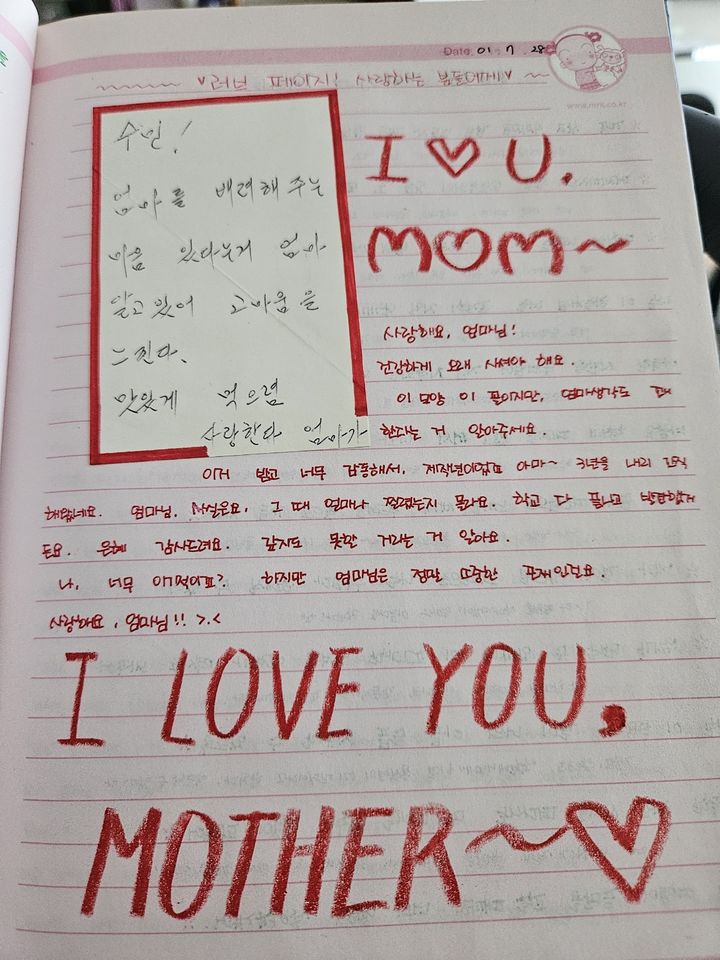 Date. 01. 7. 28
♥러브 페이지! 사랑하는 분들에게♥
www.mrk.co.kr
수민!
엄마를 배려해 주는
마음 있다는게 엄마
알고 있어 고마움을
느낀다.
맛있게 먹으렴
사랑한다 엄마가
I ♡ U.
MOM~
사랑해요, 엄마님!
건강하게 오래 사셔야 해요.
이 모양 이 꼴이지만, 엄마생각도
한다는 거 알아주세요.
이거 받고 너무 감동해서, 아마~ 3년을 내리
엄마님. 사실은요, 그 때 얼마나 찔렸는지 몰라요. 학교 다
은혜 감사드려요. 갚지도 못할 거라는 거 알아요.
나, 너무 하지만 엄마님은 정말 소중한 존재인걸요.
사랑해요, 엄마님!! >.<
I LOVE YOU,
MOTHER~♡